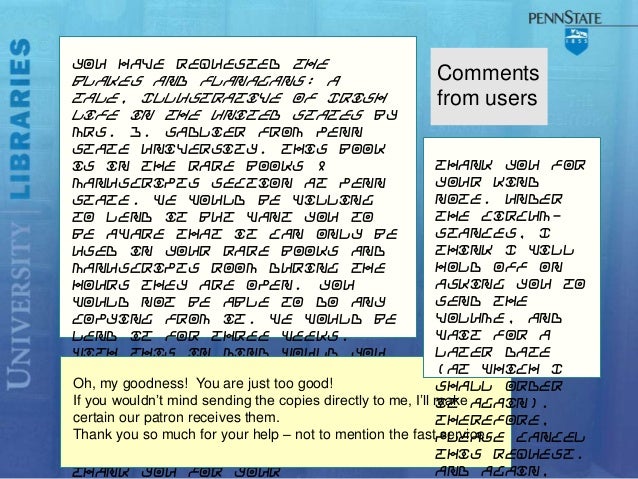 PENNSTATE
1855
UNIVERSITY LIBRARIES
YOU HAVE REQUESTED THE
BLAKES AND FLANAGANS: A
TALE, ILLUSTRATIVE OF IRISH
LIFE IN THE UNITED STATES BY
MRS. J. SADLIER FROM PENN
STATE UNIVERSITY. THIS BOOK
IS IN THE RARE BOOKS &
MANUSCRIPTS SECTION AT PENN
STATE. WE WOULD BE WILLING
TO LEND IT BUT WANT YOU TO
BE AWARE THAT IT CAN ONLY BE
USED IN YOUR RARE BOOKS AND
MANUSCRIPTS ROOM DURING THE
HOURS THEY ARE OPEN. YOU
WOULD NOT BE ABLE TO DO ANY
COPYING FROM IT. WE WOULD BE
LEND IT FOR THREE WEEKS.
WITH THIS IN MIND WOULD YOU
Comments
from users
THANK YOU FOR
YOUR KIND
NOTE. UNDER
THE CIRCUM-
STANCES, I
THINK I WILL
HOLD OFF ON
ASKING YOU TO
SEND THE
VOLUME, AND
WAIT FOR A
LATER DATE
(AT WHICH I
SHALL ORDER
IT AGAIN).
THEREFORE,
PLEASE CANCEL
THIS REQUEST.
AND AGAIN,
Oh, my goodness! You are just too good!
If you wouldn't mind sending the copies directly to me, I'll make
certain our patron receives them.
Thank you so much for your help – not to mention the fast service
THANK YOU FOR YOUR